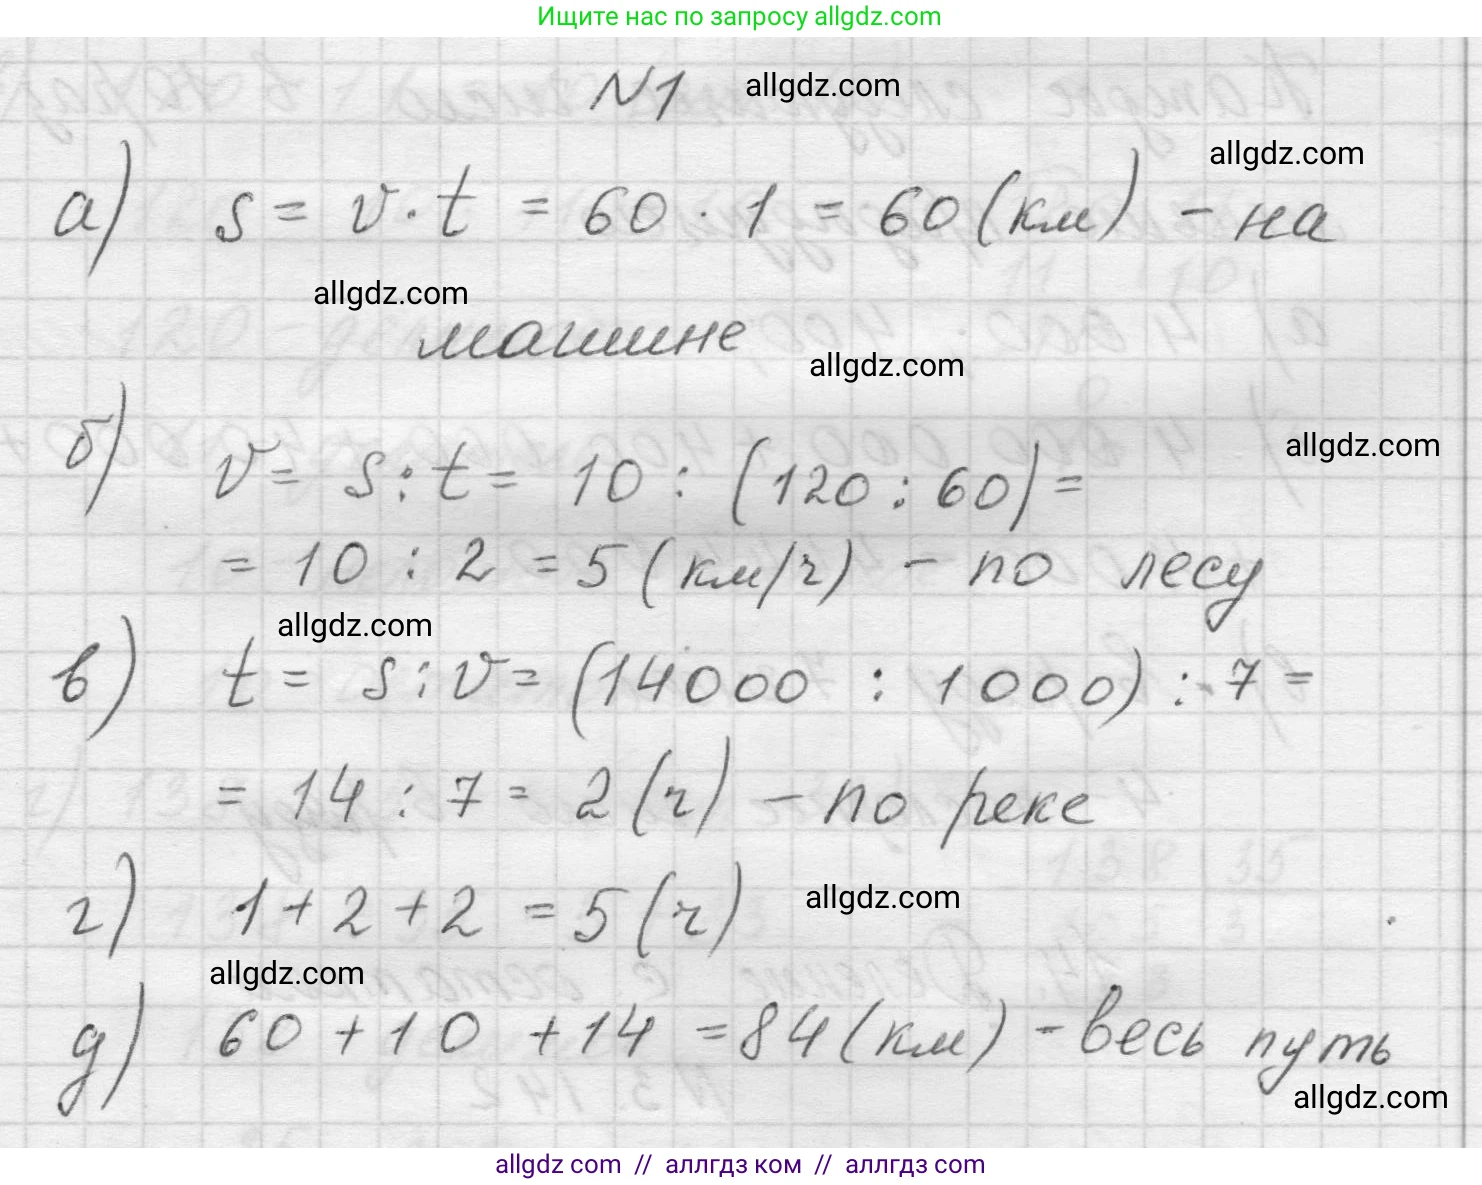 Ищите нас по запросу allgdz.com
N1 allgdz.com
allgdz.com
а) s = v · t = 60 · 1 = 60 (км) - на
allgdz.com
машине
allgdz.com
б) v = s : t = 10 : (120 : 60) =
allgdz.com
= 10 : 2 = 5 (км/ч) - по лесу
allgdz.com
в) t = s : v = (14000 : 1000) : 7 =
= 14 : 7 = 2 (ч) - по реке
г) 1 + 2 + 2 = 5 (ч)
allgdz.com
allgdz.com
д) 60 + 10 + 14 = 84 (км) - весь путь
allgdz.com
allgdz com // аллгдз ком // аллгдз com